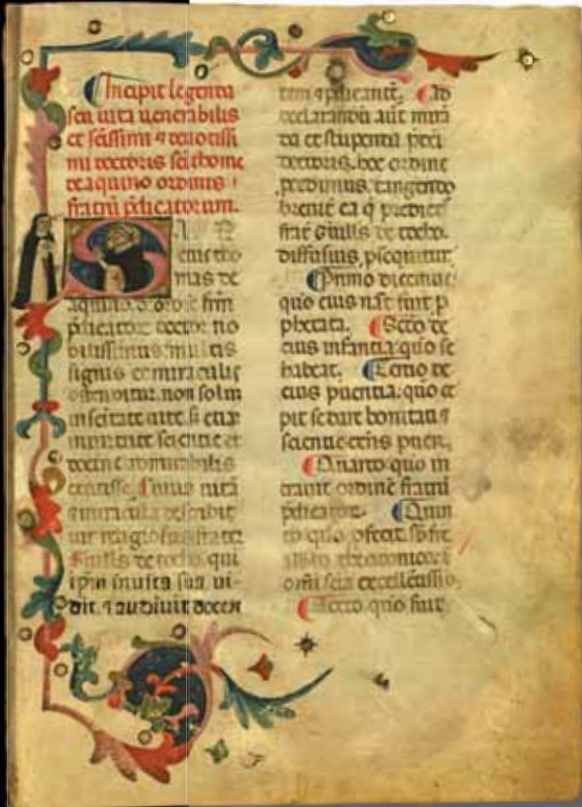 Incipit legenda
seu uita uenerabilis
et scissimi ⁊ deuotissi
mi doctoris sci thome
de aquino ordinis
fratrū p̄dicatorum.
S
eius tho
mas de
aquino
p̄dicator doctor no
bilissimus multis
signis et miraculis
ostenditur. non solum
in scitate uite. si etiā
excellentie
doctne admirabilis
uitā
⁊ miracula describit
uir religiosus frater
Guills de tocho. qui
ip̄m in uita sua ui-
dit. ⁊ audiuit docen
tem ⁊ p̄dicantē. Ad
declarandū aūt mirā
da et stupenda p̄dci
doctoris. hoc ordine
p̄cedimus. tangendo
breuit ea q̄ predict
frat̄ Guills de tocho.
diffusius p̄sequitur.
Primo dicemus
quo eius nast fuit p
phetata. Scdo de
eius infantia quo se
habeat. Tertio de
eius pueritia: quo ce
pit se dare bonitati ⁊
scientie
Quarto quo in
trauit ordinē fratrū
p̄dicatorꝝ. Quin
to quo
alb̄to theotonico ī
omi scia excellētissio.
Sexto quo fuit